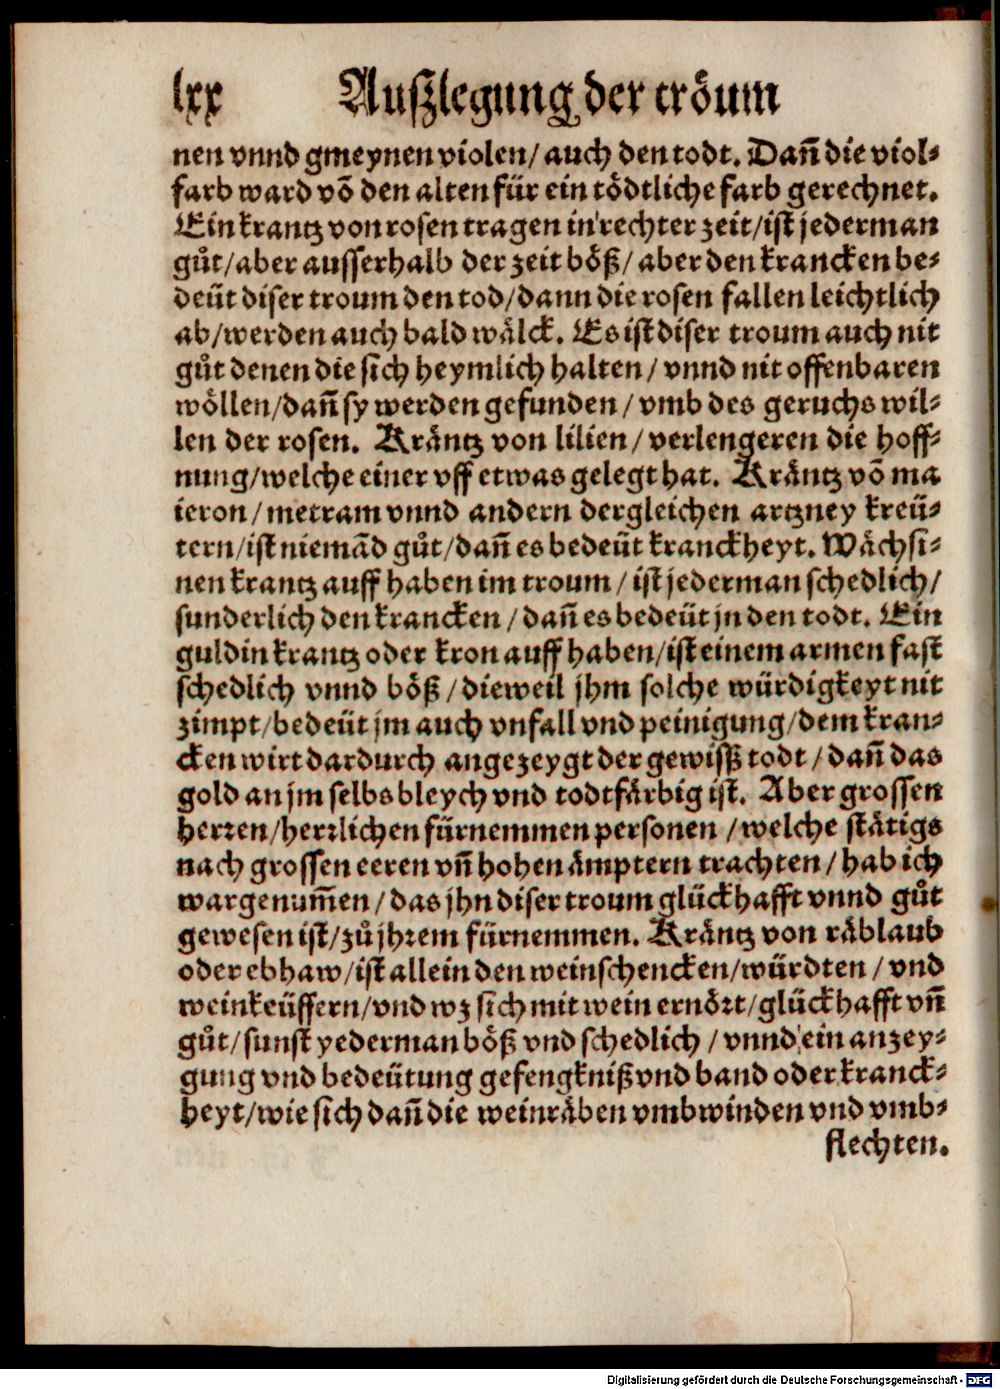 lxx Auſzlegung der tröum
nen vnnd gmeynen violen/ auch den todt. Dañ die viol⸗
farb ward võ den alten für ein tödtliche farb gerechnet.
Ein krantz von roſen tragen in rechter zeit/iſt jederman
gůt/aber auſſerhalb der zeit böß/ aber den krancken be⸗
deüt diſer troum den tod/dann die roſen fallen leichtlich
ab/werden auch bald wälck. Es iſt diſer troum auch nit
gůt denen die ſich heymlich halten/ vnnd nit offenbaren
wöllen/dañ ſy werden gefunden/ vmb des geruchs wil⸗
len der roſen. Kräntz von lilien/ verlengeren die hoff⸗
nung/welche einer vff etwas gelegt hat. Kräntz võ ma
ieron/ metram vnnd andern dergleichen artzney kreü⸗
tern/iſt niemãd gůt/dañ es bedeüt kranckheyt. Wächſi⸗
nen krantz auff haben im troum/ iſt jederman ſchedlich/
ſunderlich den krancken/ dañ es bedeüt jn den todt. Ein
guldin krantz oder kron auff haben/iſt einem armen faſt
ſchedlich vnnd böß/ dieweil jhm ſolche würdigkeyt nit
zimpt/bedeüt jm auch vnfall vnd peinigung/dem kran⸗
cken wirt dardurch angezeygt der gewiſß todt/ dañ das
gold an jm ſelbs bleych vnd todtfärbig iſt. Aber groſſen
herꝛen/herꝛlichen fürnemmen perſonen /welche ſtätigs
nach groſſen eeren vñ hohen ämptern trachten/ hab ich
wargenum̃en/ das jhn diſer troum glückhafft vnnd gůt
geweſen iſt/zů jhꝛem fürnemmen. Kräntz von räblaub
oder ebhaw/iſt allein den weinſchencken/würdten/ vnd
weinkeüffern/vnd wz ſich mit wein ernöꝛt/glückhafft vñ
gůt/ſunſt yederman böß vnd ſchedlich/ vnnd ein anzey⸗
gung vnd bedeütung gefengkniß vnd band oder kranck⸗
heyt/wie ſich dañ die weinräben vmbwinden vnd vmb⸗
flechten.
Digitalisierung gefördert durch die Deutsche Forschungsgemeinschaft - DFG